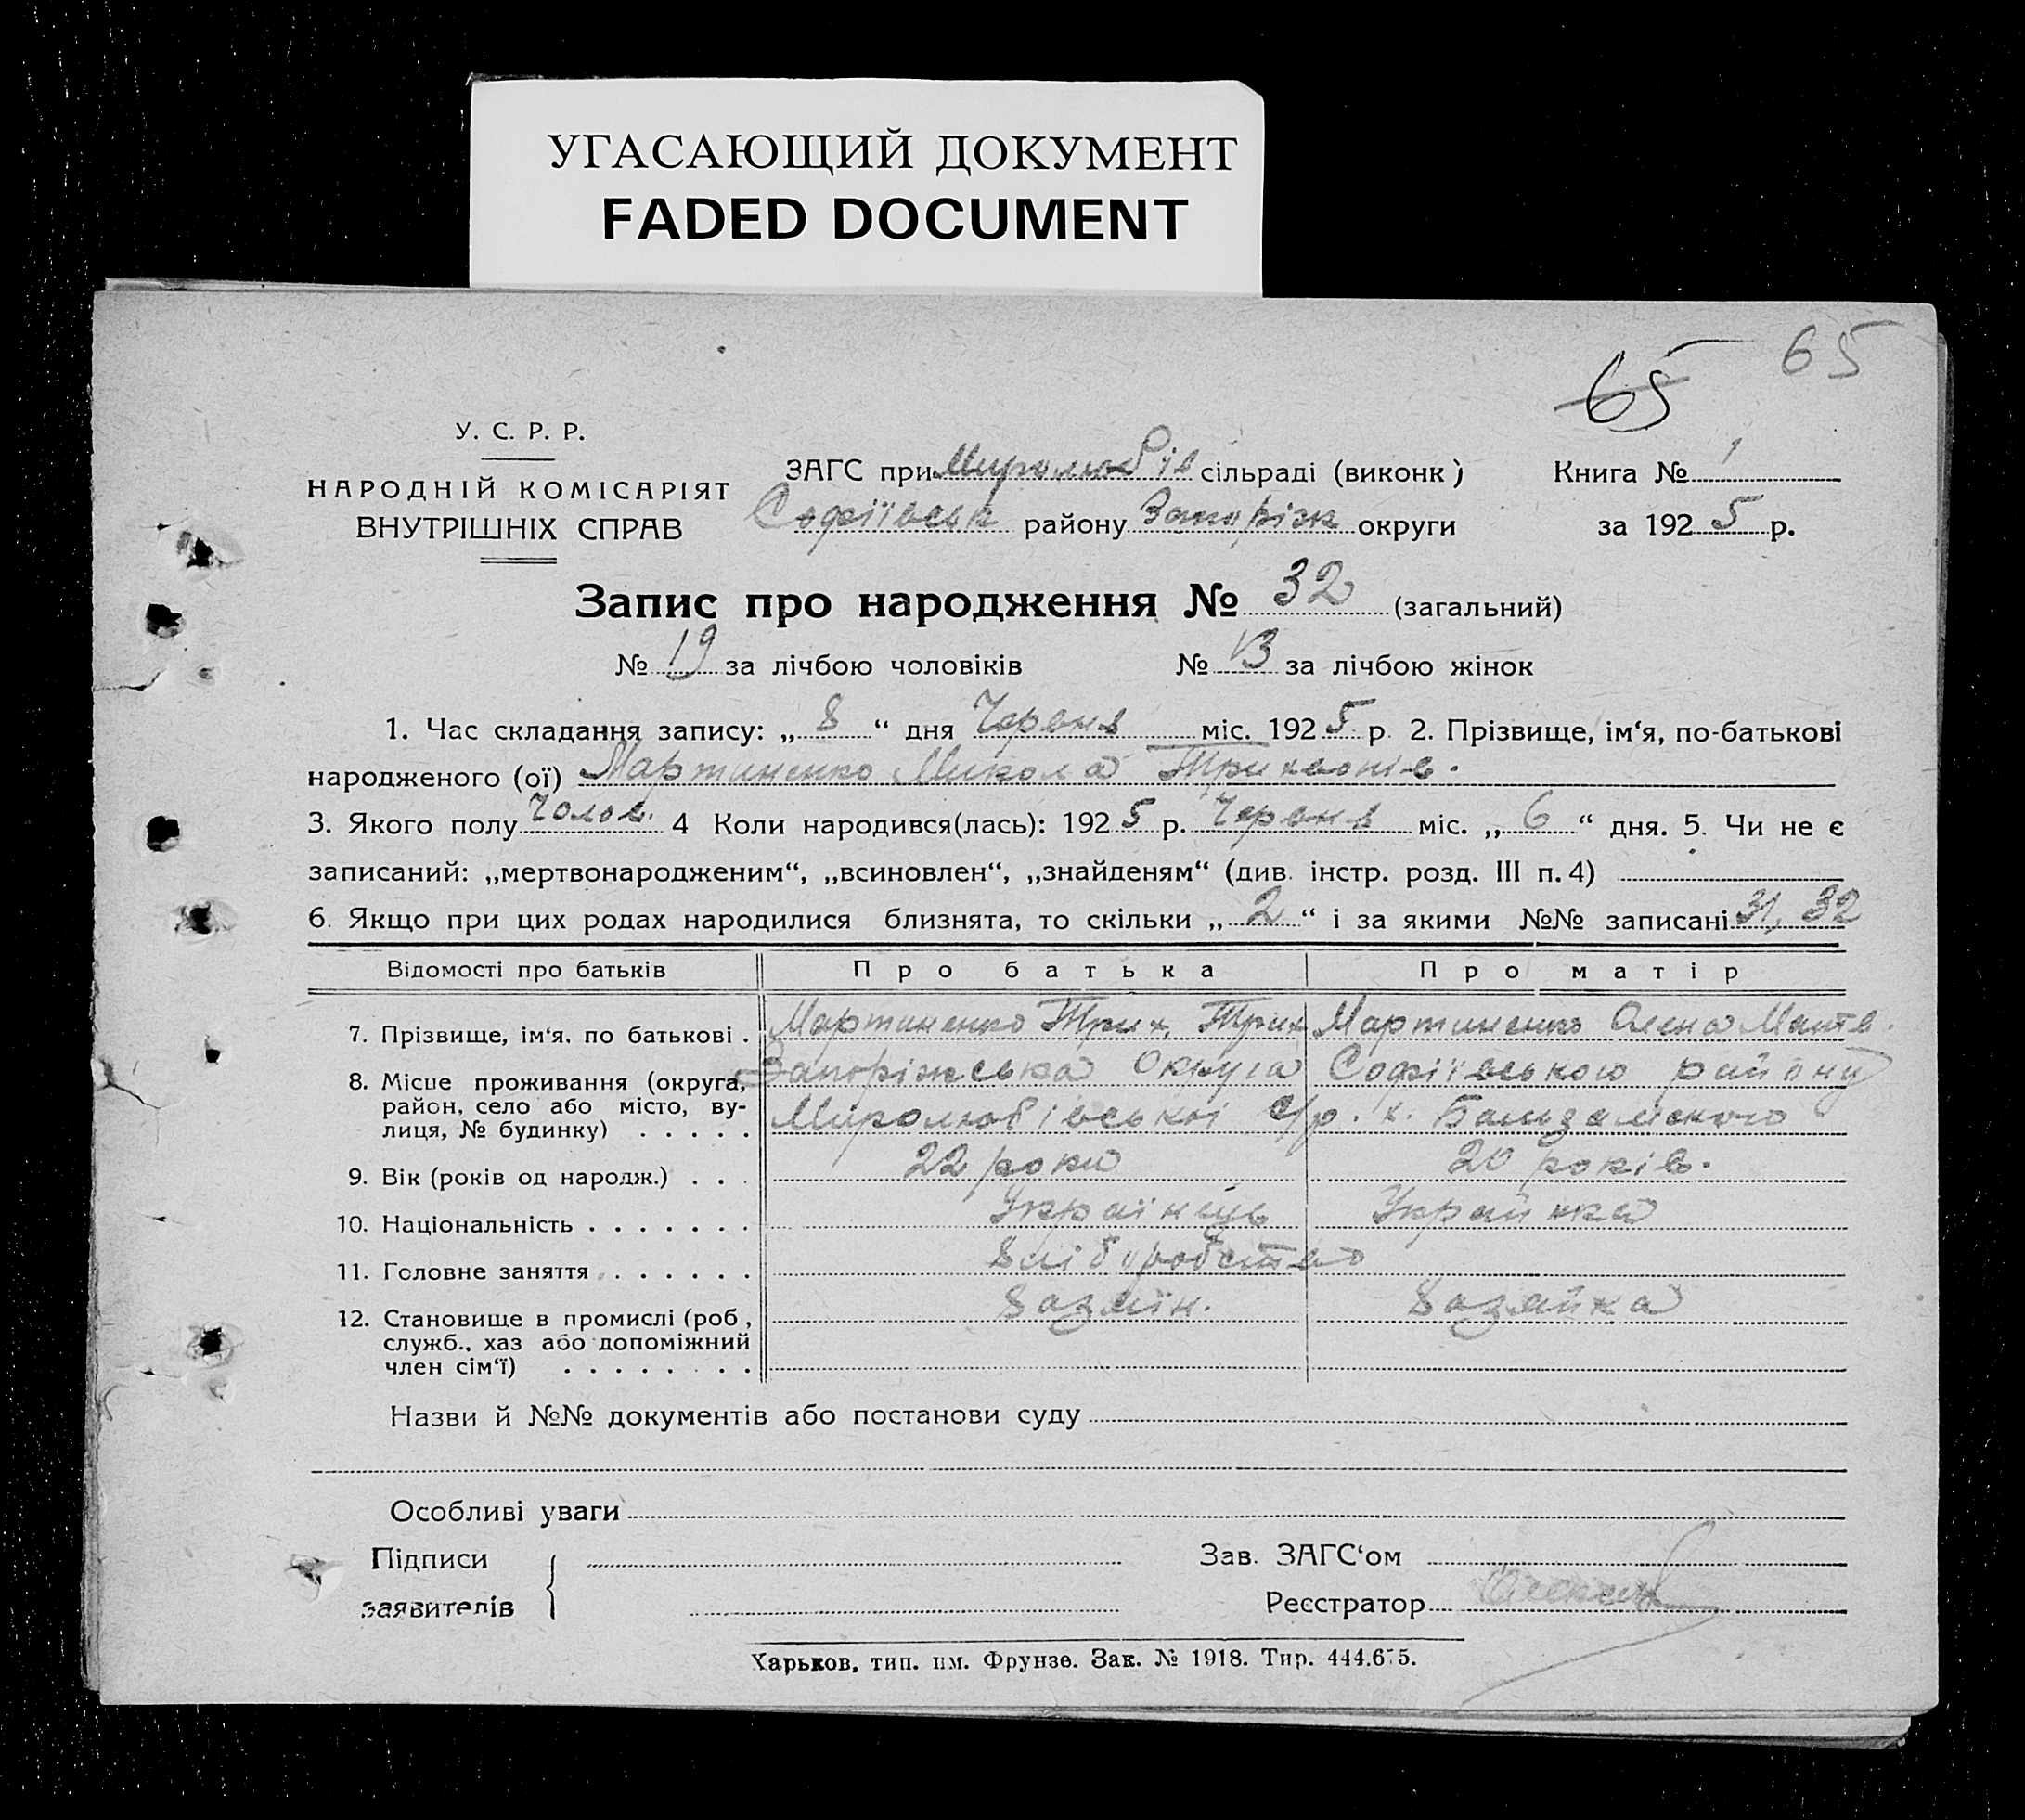 УГАСАЮЩИЙ ДОКУМЕНТ
FADED DOCUMENT
65 65
У. С. Р. Р.
НАРОДНІЙ КОМІСАРІЯТ
ВНУТРІШНІХ СПРАВ
ЗАГС при Миролюбів сільраді (виконк) Книга № 1
Софіївськ району Запоріж округи за 1925 р.
Запис про народження № 32 (загальний)
№ 19 за лічбою чоловіків № 13 за лічбою жінок
1. Час складання запису: „8“ дня Червня міс. 1925 р. 2. Прізвище, ім‘я, по-батькові
народженого (ої) Мартиненко Микола Трихвонів.
3. Якого полу Чолов. 4 Коли народився(лась): 1925 р. Червня міс. „6“ дня. 5. Чи не є
записаний: „мертвонародженим“, „всиновлен“, „знайденям“ (див. інстр. розд. III п. 4)
6. Якщо при цих родах народилися близнята, то скільки „2“ і за якими №№ записані 31, 32
Відомості про батьків Про батька Про матір
7. Прізвище, ім‘я, по батькові . Мартиненко Трих. Трих Мартиненко Олена Матв.
8. Місце проживання (округа, Запоріжська Округа Софіївського району
район, село або місто, ву-
лиця, № будинку) . . . . . Миролюбівської с/р. х.
9. Вік (років од народж.) . . . 22 роки 20 років.
10. Національність . . . . . . . Українець Українка
11. Головне заняття . . . . . . . Хліборобство
12. Становище в промислі (роб., Хазяїн. Хазяйка
служб., хаз або допоміжний
член сім‘ї) . . . . . . . .
Назви й №№ документів або постанови суду
Особливі уваги
Підписи Зав. ЗАГС‘ом
заявителів Реєстратор
Харьков, тип. им. Фрунзе. Зак. № 1918. Тир. 444.675.